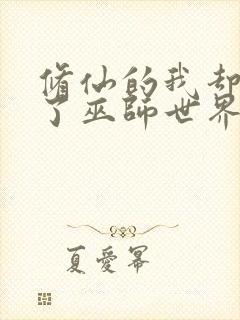 修仙的我却
了巫師世界
夏愛冪